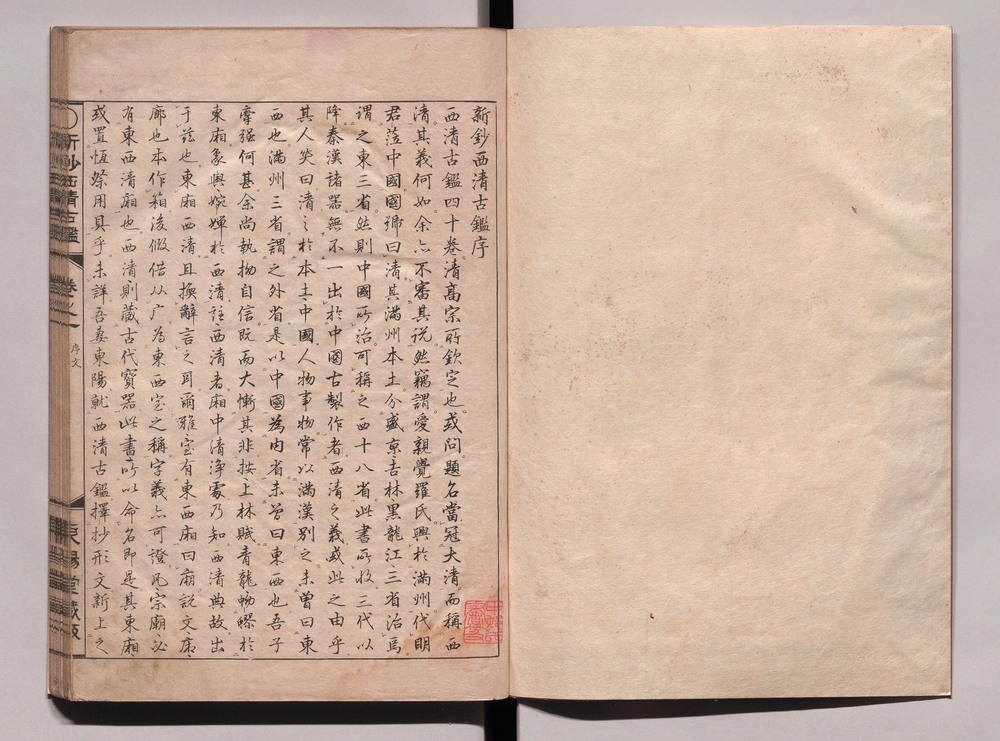 新鈔西清古鑑序
西清古鑑四十卷清高宗所欽定也或问題名當冠大清而稱西
清其義何如余亦不審其说然竊謂愛親覺羅氏興於滿州代明
君莅中國國號曰清其滿州本土分盛京吉林黒龍江三省治焉
謂之東三省然則中國所治可稱之西十八省此書所收三代以
降秦漢諸器無不一出於中國古製作者西清之義或此之由乎
其人笑曰清之於本土中國人物事物常以滿漢別之未曾曰東
西也滿州三省謂之外省是以中國為内省未曽曰東西也吾子
牽强何甚余尚執拗自信既而大慚其非按上林賦青龍蚴蟉於
東廂象輿婉嬋於西清註西清者廂中清浄處乃知西清典故出
于玆也東廂西清且換辭言之耳爾雅室有東西廂曰廟説文廡
廊也本作箱後假借从广為東西室之稱字義亦可證凡宗廟必
有東西清廂也西清則蔵古代寶器此書所以命名即是其東廂
或置恆祭用具乎未詳吾妻東陽就西清古鑑擇抄形文新上之
新鈔西清古鑑
卷之一
序文
東陽堂蔵版